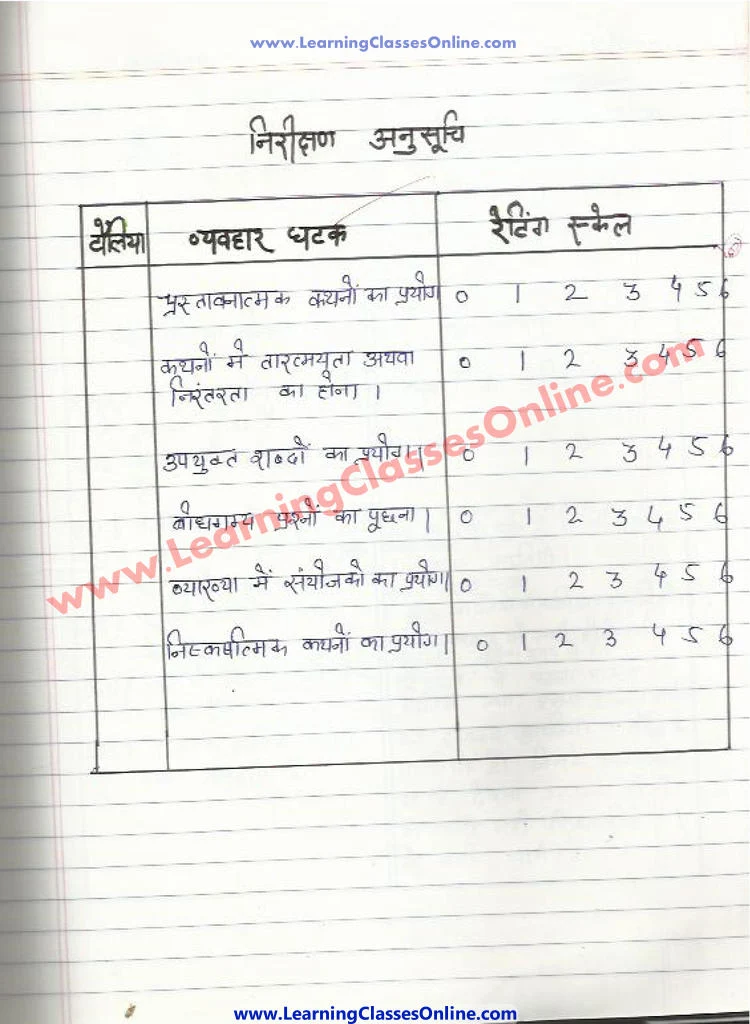 www.LearningClassesOnline.com
निरीक्षण अनुसूचि
टेलिया व्यवहार घटक रेटिंग स्केल
प्रस्तावनात्मक कथनों का प्रयोग 0 1 2 3 4 5 6
कथनों में तारत्मयूता अथवा 0 1 2 3 4 5 6
निरंतरता का होना ।
उपयुक्त शब्दों का प्रयोग। 0 1 2 3 4 5 6
बोधगम्य प्रश्नों का पूछना। 0 1 2 3 4 5 6
व्याख्या में संयोजको का प्रयोग। 0 1 2 3 4 5 6
निस्कर्षात्मक कथनों का प्रयोग। 0 1 2 3 4 5 6
www.LearningClassesOnline.com
www.LearningClassesOnline.com